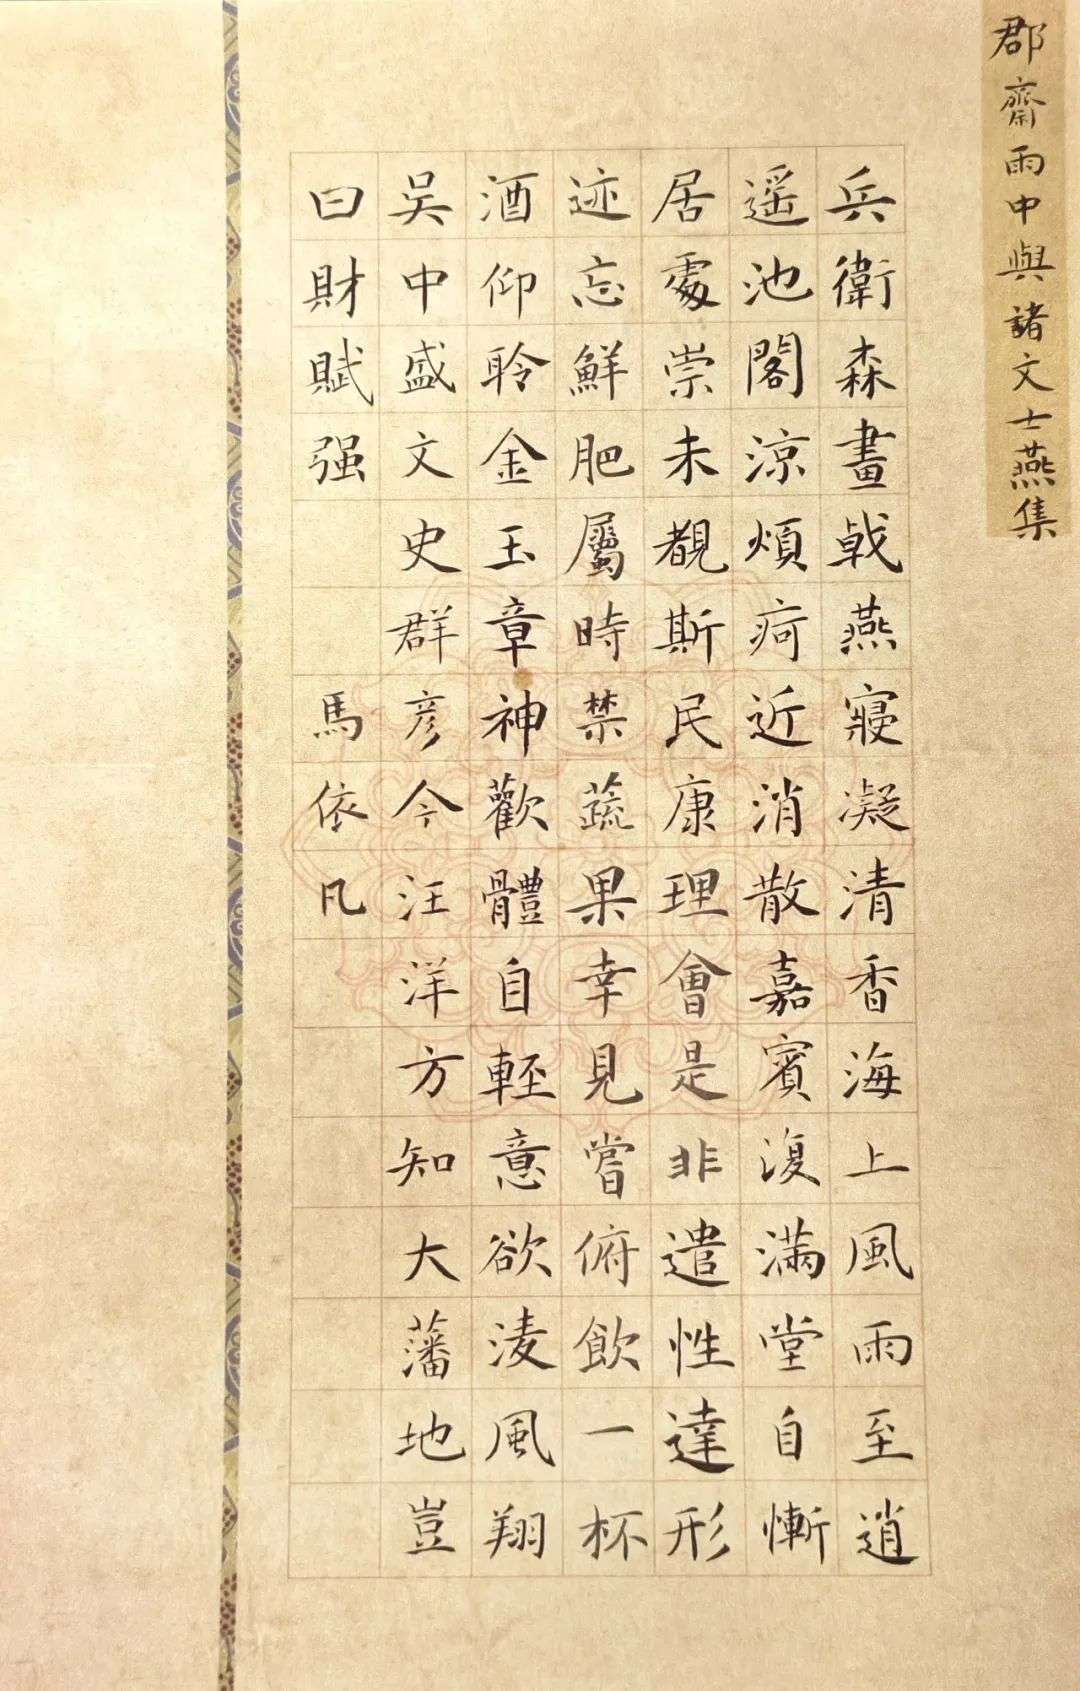 郡齋雨中與諸文士燕集
兵衛森畫戟燕寢凝清香海上風雨至逍
遥池閣涼煩疴近消散嘉賓復滿堂自慚
居處崇未覩斯民康理會是非遣性達形
迹忘鮮肥屬時禁蔬果幸見嘗俯飲一杯
酒仰聆金玉章神歡體自輕意欲淩風翔
吳中盛文史群彥今汪洋方知大藩地豈
曰財賦强
馬依凡